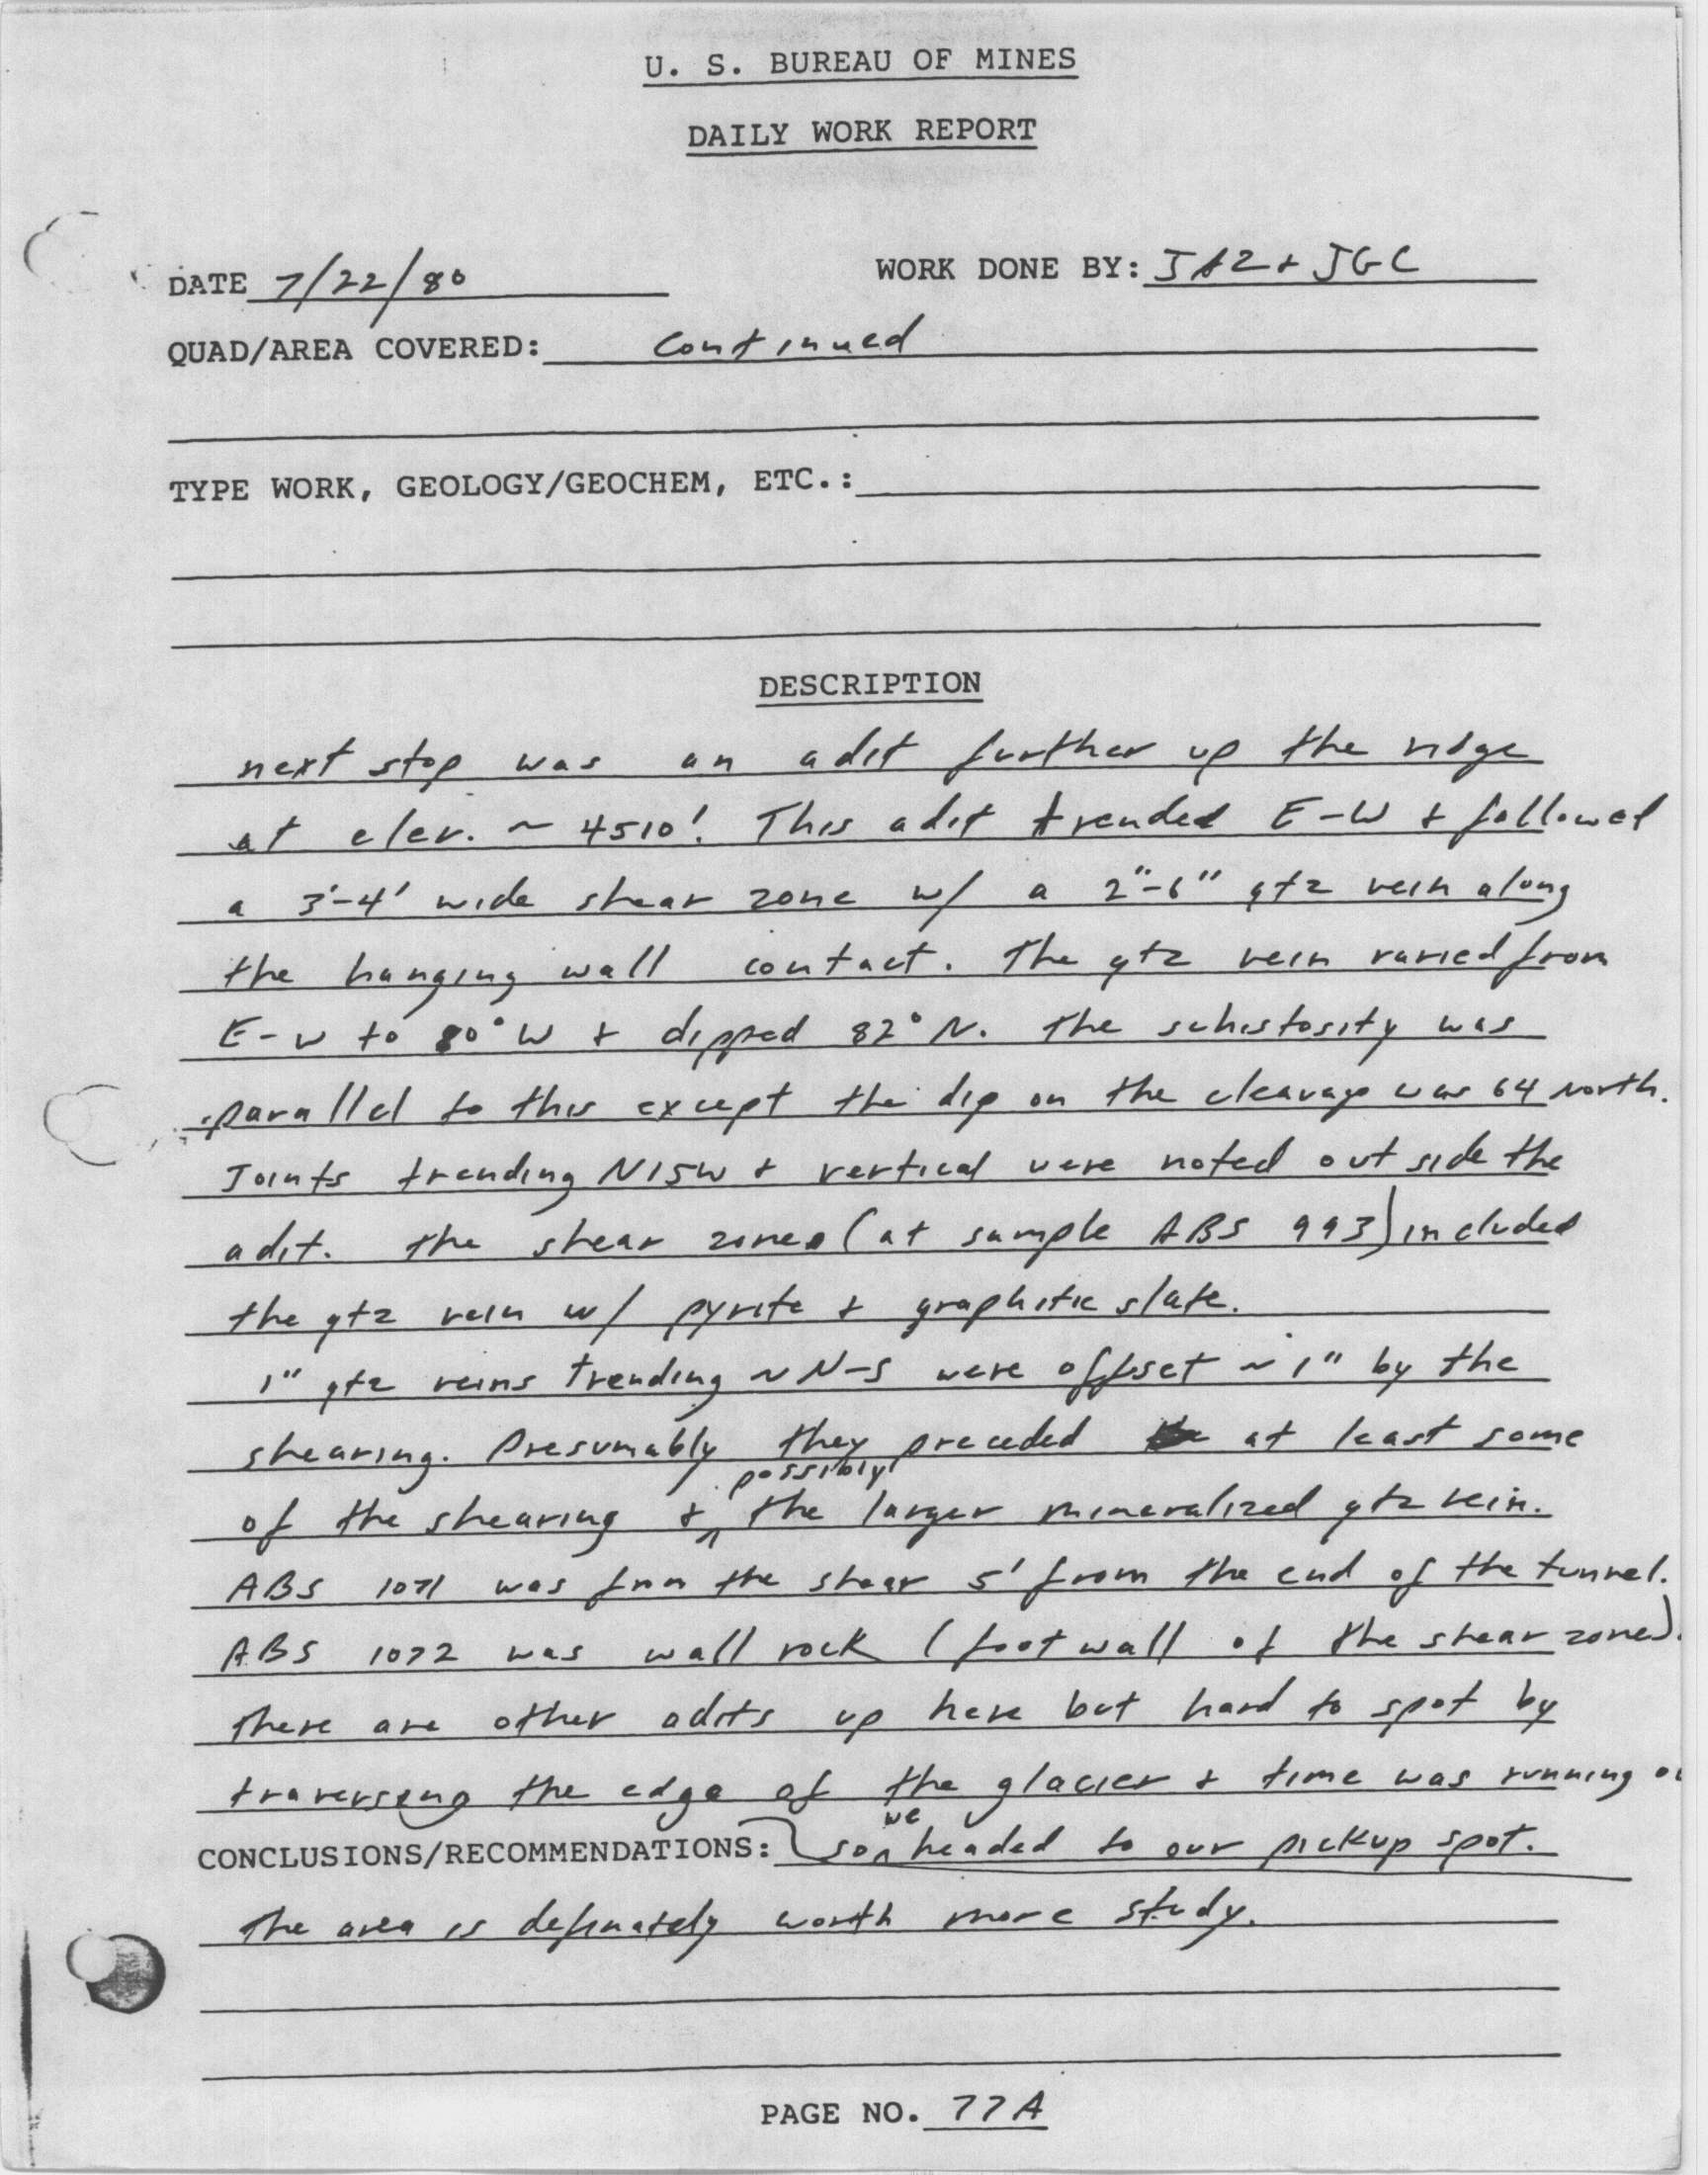 U. S. BUREAU OF MINES
DAILY WORK REPORT
DATE 7/22/80 WORK DONE BY: JAZ + JGC
QUAD/AREA COVERED: continued
TYPE WORK, GEOLOGY/GEOCHEM, ETC.:
DESCRIPTION
next stop was an adit further up the ridge
at elev. ~ 4510'. This adit trended E-W + followed
a 3'-4' wide shear zone w/ a 2"-6" qtz vein along
the hanging wall contact. The qtz vein varied from
E-W to 80° W + dipped 82° N. The schistosity was
parallel to this except the dip on the cleavage was 64 north.
Joints trending N15W + vertical were noted outside the
adit. The shear zone (at sample ABS 993) included
the qtz vein w/ pyrite + graphitic slate.
1" qtz veins trending ~ N-S were offset ~ 1" by the
shearing. Presumably they preceded at least some
of the shearing + possibly the larger mineralized qtz vein.
ABS 1071 was from the shear 5' from the end of the tunnel.
ABS 1072 was wall rock (foot wall of the shear zone).
There are other adits up here but hard to spot by
traversing the edge of the glacier + time was running
CONCLUSIONS/RECOMMENDATIONS: so we headed to our pickup spot.
The area is definately worth more study.
PAGE NO. 77A